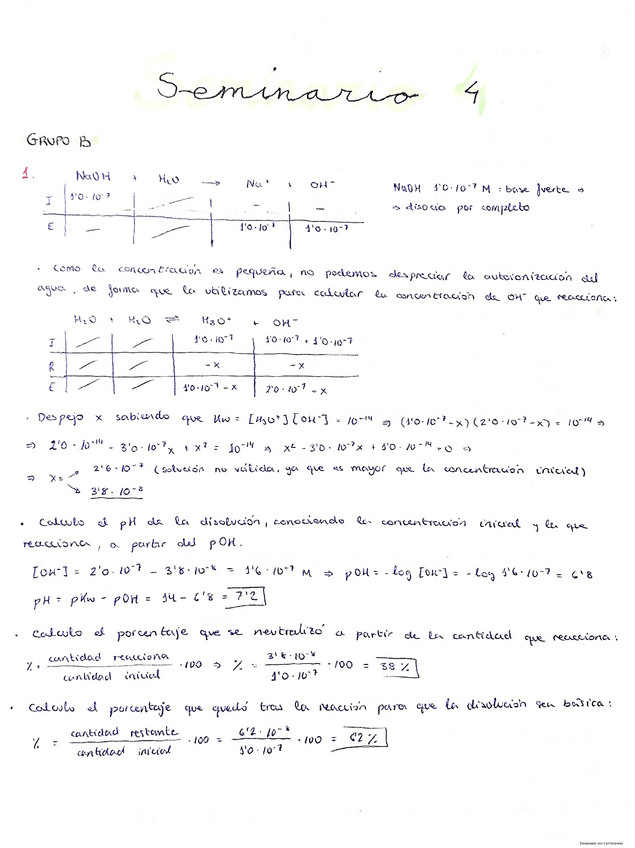 Seminario 4
GRUPO B
1. NaOH + H₂O → Na⁺ + OH⁻
I 1'0·10⁻⁷ — —
E — 1'0·10⁻⁷ 1'0·10⁻⁷
NaOH 1'0·10⁻⁷ M : base fuerte ⇒
⇒ disocia por completo
· Como la concentración es pequeña, no podemos despreciar la autoionización del
agua, de forma que la utilizamos para calcular la concentración de OH⁻ que reacciona:
H₂O + H₂O ⇌ H₃O⁺ + OH⁻
I 1'0·10⁻⁷ 1'0·10⁻⁷ + 1'0·10⁻⁷
R -x -x
E 1'0·10⁻⁷ - x 2'0·10⁻⁷ - x
· Despejo x sabiendo que Kw = [H₃O⁺][OH⁻] = 10⁻¹⁴ ⇒ (1'0·10⁻⁷-x)(2'0·10⁻⁷-x) = 10⁻¹⁴ ⇒
⇒ 2'0·10⁻¹⁴ - 3'0·10⁻⁷x + x² = 10⁻¹⁴ ⇒ x² - 3'0·10⁻⁷x + 1'0·10⁻¹⁴ = 0 ⇒
⇒ x= 2'6·10⁻⁷ (solución no válida, ya que es mayor que la concentración inicial)
3'8·10⁻⁸
· Calculo el pH de la disolución, conociendo la concentración inicial y la que
reacciona, a partir del pOH.
[OH⁻] = 2'0·10⁻⁷ - 3'8·10⁻⁸ = 1'6·10⁻⁷ M ⇒ pOH = -log [OH⁻] = -log 1'6·10⁻⁷ = 6'8
pH = pKw - pOH = 14 - 6'8 = 7'2
· Calculo el porcentaje que se neutralizó a partir de la cantidad que reacciona:
% = cantidad reacciona / cantidad inicial · 100 ⇒ % = 3'8·10⁻⁸ / 1'0·10⁻⁷ · 100 = 38 %
· Calculo el porcentaje que quedó tras la reacción para que la disolución sea básica:
% = cantidad restante / cantidad inicial · 100 = 6'2·10⁻⁸ / 1'0·10⁻⁷ · 100 = 62 %
Escaneado con CamScanner